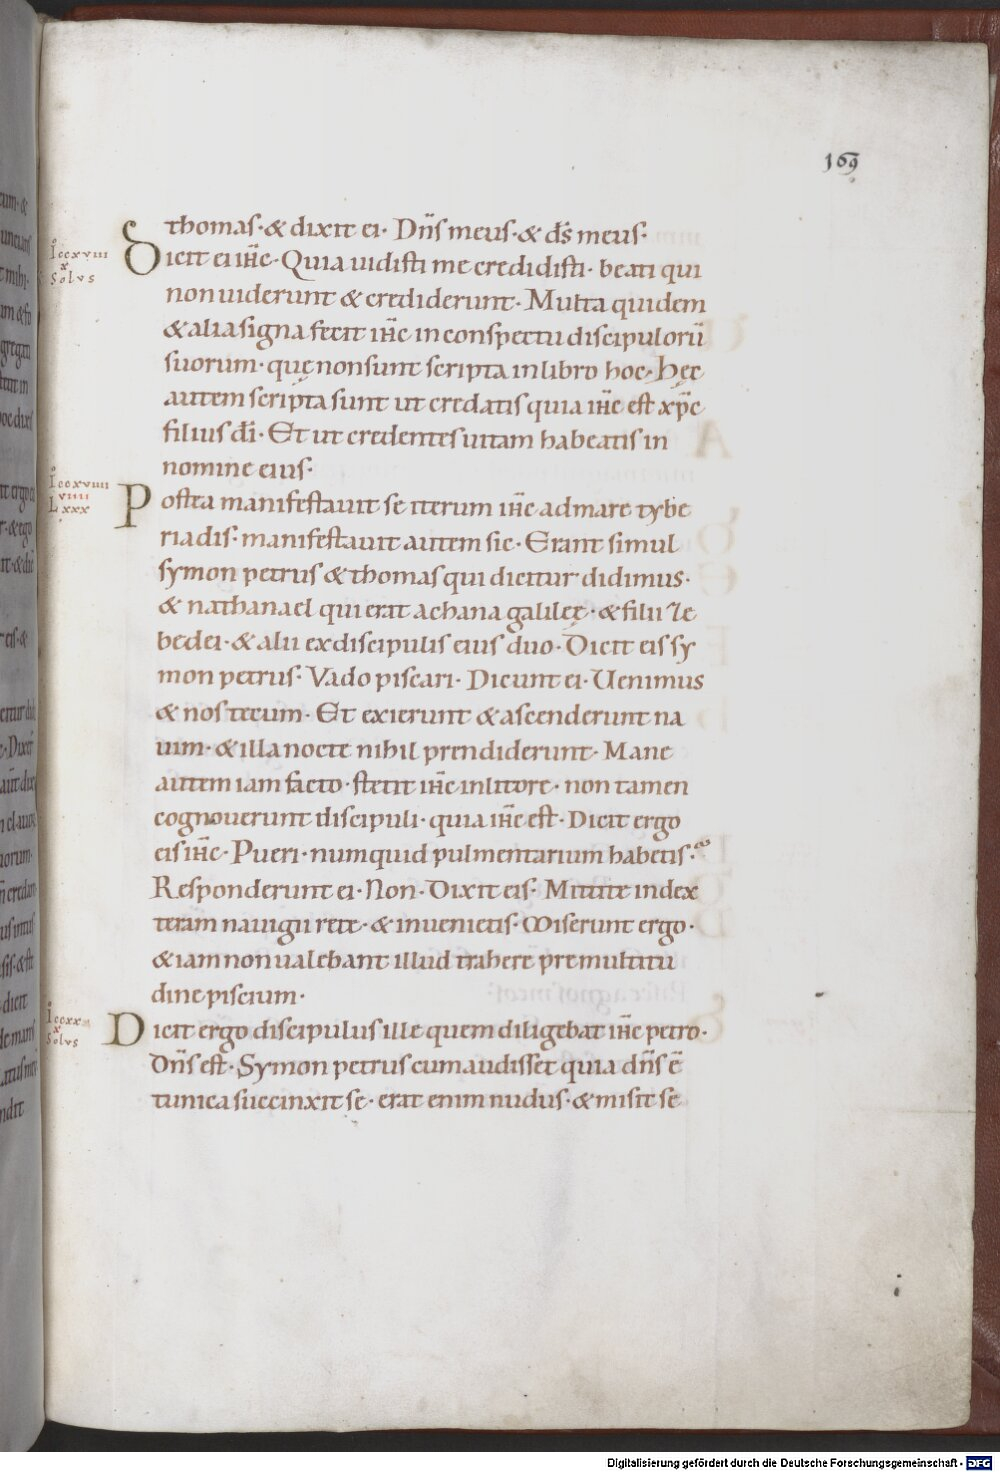 169
thomas· & dixit ei· Dn̄s meus· & d̄s meus·
Iccxviii
x
Solvs
Dicit ei ih̄c· Quia uidisti me credidisti· beati qui
non uiderunt & crediderunt· Multa quidem
& alia signa fecit ih̄c in conspectu discipulorū
suorum· quę non sunt scripta in libro hoc· Hęc
autem scripta sunt ut credatis quia ih̄c est xp̄c
filius dī· Et ut credentes uitam habeatis in
nomine eius·
Iccxviiii
viiii
Lxxx
Postea manifestauit se iterum ih̄c ad mare tybe
riadis· manifestauit autem sic· Erant simul
symon petrus & thomas qui dicitur didimus·
& nathanael qui erat a chana galileę· & filii ze
bedei· & alii ex discipulis eius duo· Dicit eis sy
mon petrus· Vado piscari· Dicunt ei· Uenimus
& nos tecum· Et exierunt & ascenderunt na
uim· & illa nocte nihil prendiderunt· Mane
autem iam facto· stetit ih̄c in litore· non tamen
cognouerunt discipuli· quia ih̄c est· Dicit ergo
eis ih̄c· Pueri· numquid pulmentarium habetis·
Responderunt ei· Non· Dixit eis· Mittite in dex
teram nauigii rete· & inuenietis· Miserunt ergo·
& iam non ualebant illud trahere pre multitu
dine piscium·
Iccxx
x
Solvs
Dicit ergo discipulus ille quem diligebat ih̄c petro·
Dn̄s est· Symon petrus cum audisset quia dn̄s ē
tunica succinxit se· erat enim nudus· & misit se
Digitalisierung gefördert durch die Deutsche Forschungsgemeinschaft - DFG